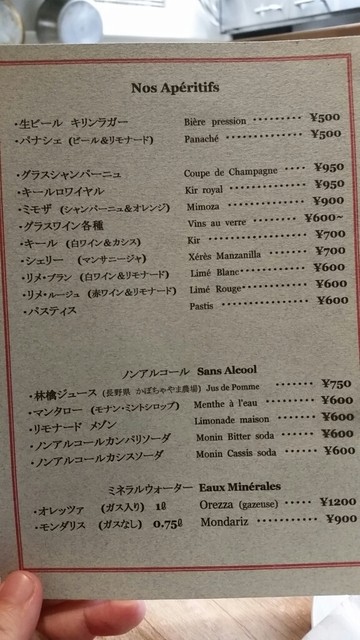 Nos Apéritifs
・生ビール キリンラガー Bière pression ・・・・・・・・・ ¥500
・パナシェ (ビール＆リモナード) Panaché ・・・・・・・・・・・・・ ¥500
・グラスシャンパーニュ Coupe de Champagne ・・・・ ¥950
・キールロワイヤル Kir royal ・・・・・・・・・・・・ ¥950
・ミモザ (シャンパーニュ＆オレンジ) Mimoza ・・・・・・・・・・・・・ ¥900
・グラスワイン各種 Vins au verre ・・・・・・・・ ¥600~
・キール (白ワイン＆カシス) Kir ・・・・・・・・・・・・・・・・ ¥700
・シェリー (マンサニージャ) Xérès Manzanilla ・・・・・・・ ¥700
・リメ・ブラン (白ワイン＆リモナード) Limé Blanc・・・・・・・・・・ ¥600
・リメ・ルージュ (赤ワイン＆リモナード) Limé Rouge・・・・・・・・・・ ¥600
・パスティス Pastis ・・・・・・・・・・・・・・ ¥600
ノンアルコール Sans Alcool
・林檎ジュース (長野県 かぼちゃやま農場) Jus de Pomme ・・・・・・・ ¥750
・マンタロー (モナン・ミントシロップ) Menthe à l'eau ・・・・・・・ ¥600
・リモナード メゾン Limonade maison ・・・・・・ ¥600
・ノンアルコールカンパリソーダ Monin Bitter soda ・・・・・ ¥600
・ノンアルコールカシスソーダ Monin Cassis soda ・・・・ ¥600
ミネラルウォーター Eaux Minérales
・オレッツァ (ガス入り) 1ℓ Orezza (gazeuse) ・・・・・ ¥1200
・モンダリス (ガスなし) 0.75ℓ Mondariz ・・・・・・・・・・・ ¥900